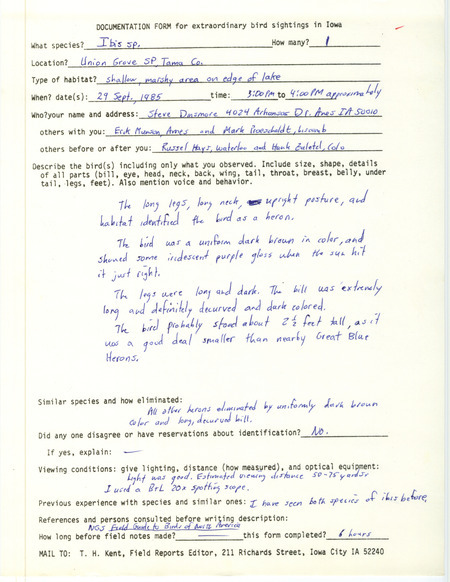 DOCUMENTATION FORM for extraordinary bird sightings in Iowa
What species? Ibis sp. How many? 1
Location? Union Grove SP, Tama Co.
Type of habitat? shallow, marshy area on edge of lake
When? date(s): 29 Sept., 1985 time: 3:00 PM to 4:00 PM approximately
Who?your name and address: Steve Dinsmore 4024 Arkansas Dr. Ames IA 50010
others with you: Erik Munson, Ames and Mark Proescholdt, Liscomb
others before or after you: Russel Hays, Waterloo and Hank Zaletel, Colo
Describe the bird(s) including only what you observed. Include size, shape, details
of all parts (bill, eye, head, neck, back, wing, tail, throat, breast, belly, under
tail, legs, feet). Also mention voice and behavior.
The long legs, long neck, upright posture, and
habitat identified the bird as a heron.
The bird was a uniform dark brown in color, and
showed some iridescent purple gloss when the sun hit
it just right.
The legs were long and dark. The bill was extremely
long and definitely decurved and dark colored.
The bird probably stood about 2½ feet tall, as it
was a good deal smaller than nearby Great Blue
Herons.
Similar species and how eliminated:
All other herons eliminated by uniformly dark brown
color and long, decurved bill.
Did any one disagree or have reservations about identification? No.
If yes, explain: —
Viewing conditions: give lighting, distance (how measured), and optical equipment:
Light was good. Estimated viewing distance 50-75 yards.
I used a B+L 20x spotting scope.
Previous experience with species and similar ones: I have seen both species of ibis before.
References and persons consulted before writing description:
NGS Field Guide to Birds of North America
How long before field notes made? —— this form completed? 6 hours
MAIL TO: T. H. Kent, Field Reports Editor, 211 Richards Street, Iowa City IA 52240